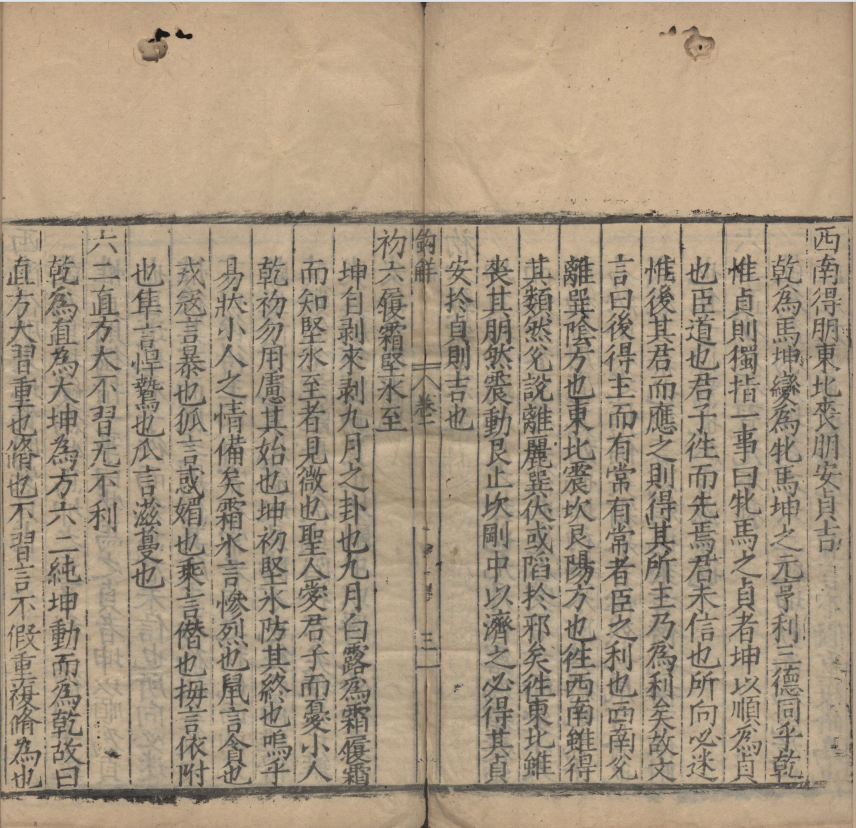 西南得朋東北喪朋安貞吉
乾為馬坤變為牝馬坤之元亨利三德同乎乾
惟貞則獨指一事曰牝馬之貞者坤以順為貞
也臣道也君子徃而先焉君未信也所向必迷
惟後其君而應之則得其所主乃為利矣故文
言曰後得主而有常有常者臣之利也西南兊
離巽陰方也東北震坎艮陽方也徃西南雖得
其類然兊說離麗巽伏或䧟於邪矣徃東北雖
喪其朋然震動艮止坎剛中以濟之必得其貞
安於貞則吉也
鈎解 卷一 三
初六履霜堅氷至
坤自剥來剥九月之卦也九月白露為霜履霜
而知堅氷至者見微也聖人愛君子而憂小人
乾初勿用慮其始也坤初堅氷防其終也嗚乎
易狀小人之情備矣霜氷言慘烈也鼠言貪也
戎宼言暴也狐言惑媚也乘言僭也拇言依附
也隼言悍鷙也瓜言滋蔓也
六二直方大不習无不利
乾為直為大坤為方六二純坤動而為乾故曰
直方大習重也脩也不習言不假重複脩為也